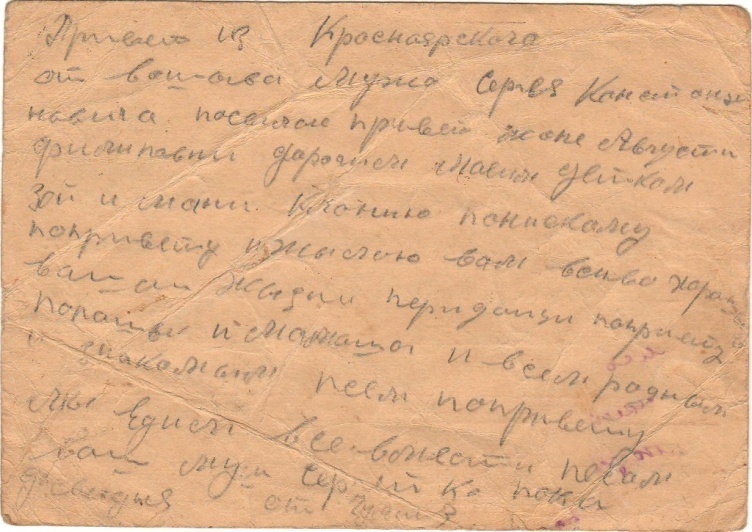 Привет из Красноярскога
от вашева мужа Сергея Констонти
новича посылаю привет жоне Августи
Филиповни дарогим маеим деткам
Зои и мани. Кланию понискому
попривету и жылаю вам всиво харош
вашай жызни перидайти попривету
папаши и мамаши и всем родным
и знакомым всем попривету
мы едим все вмести
ваш муш Сергей К пока
досвидия от